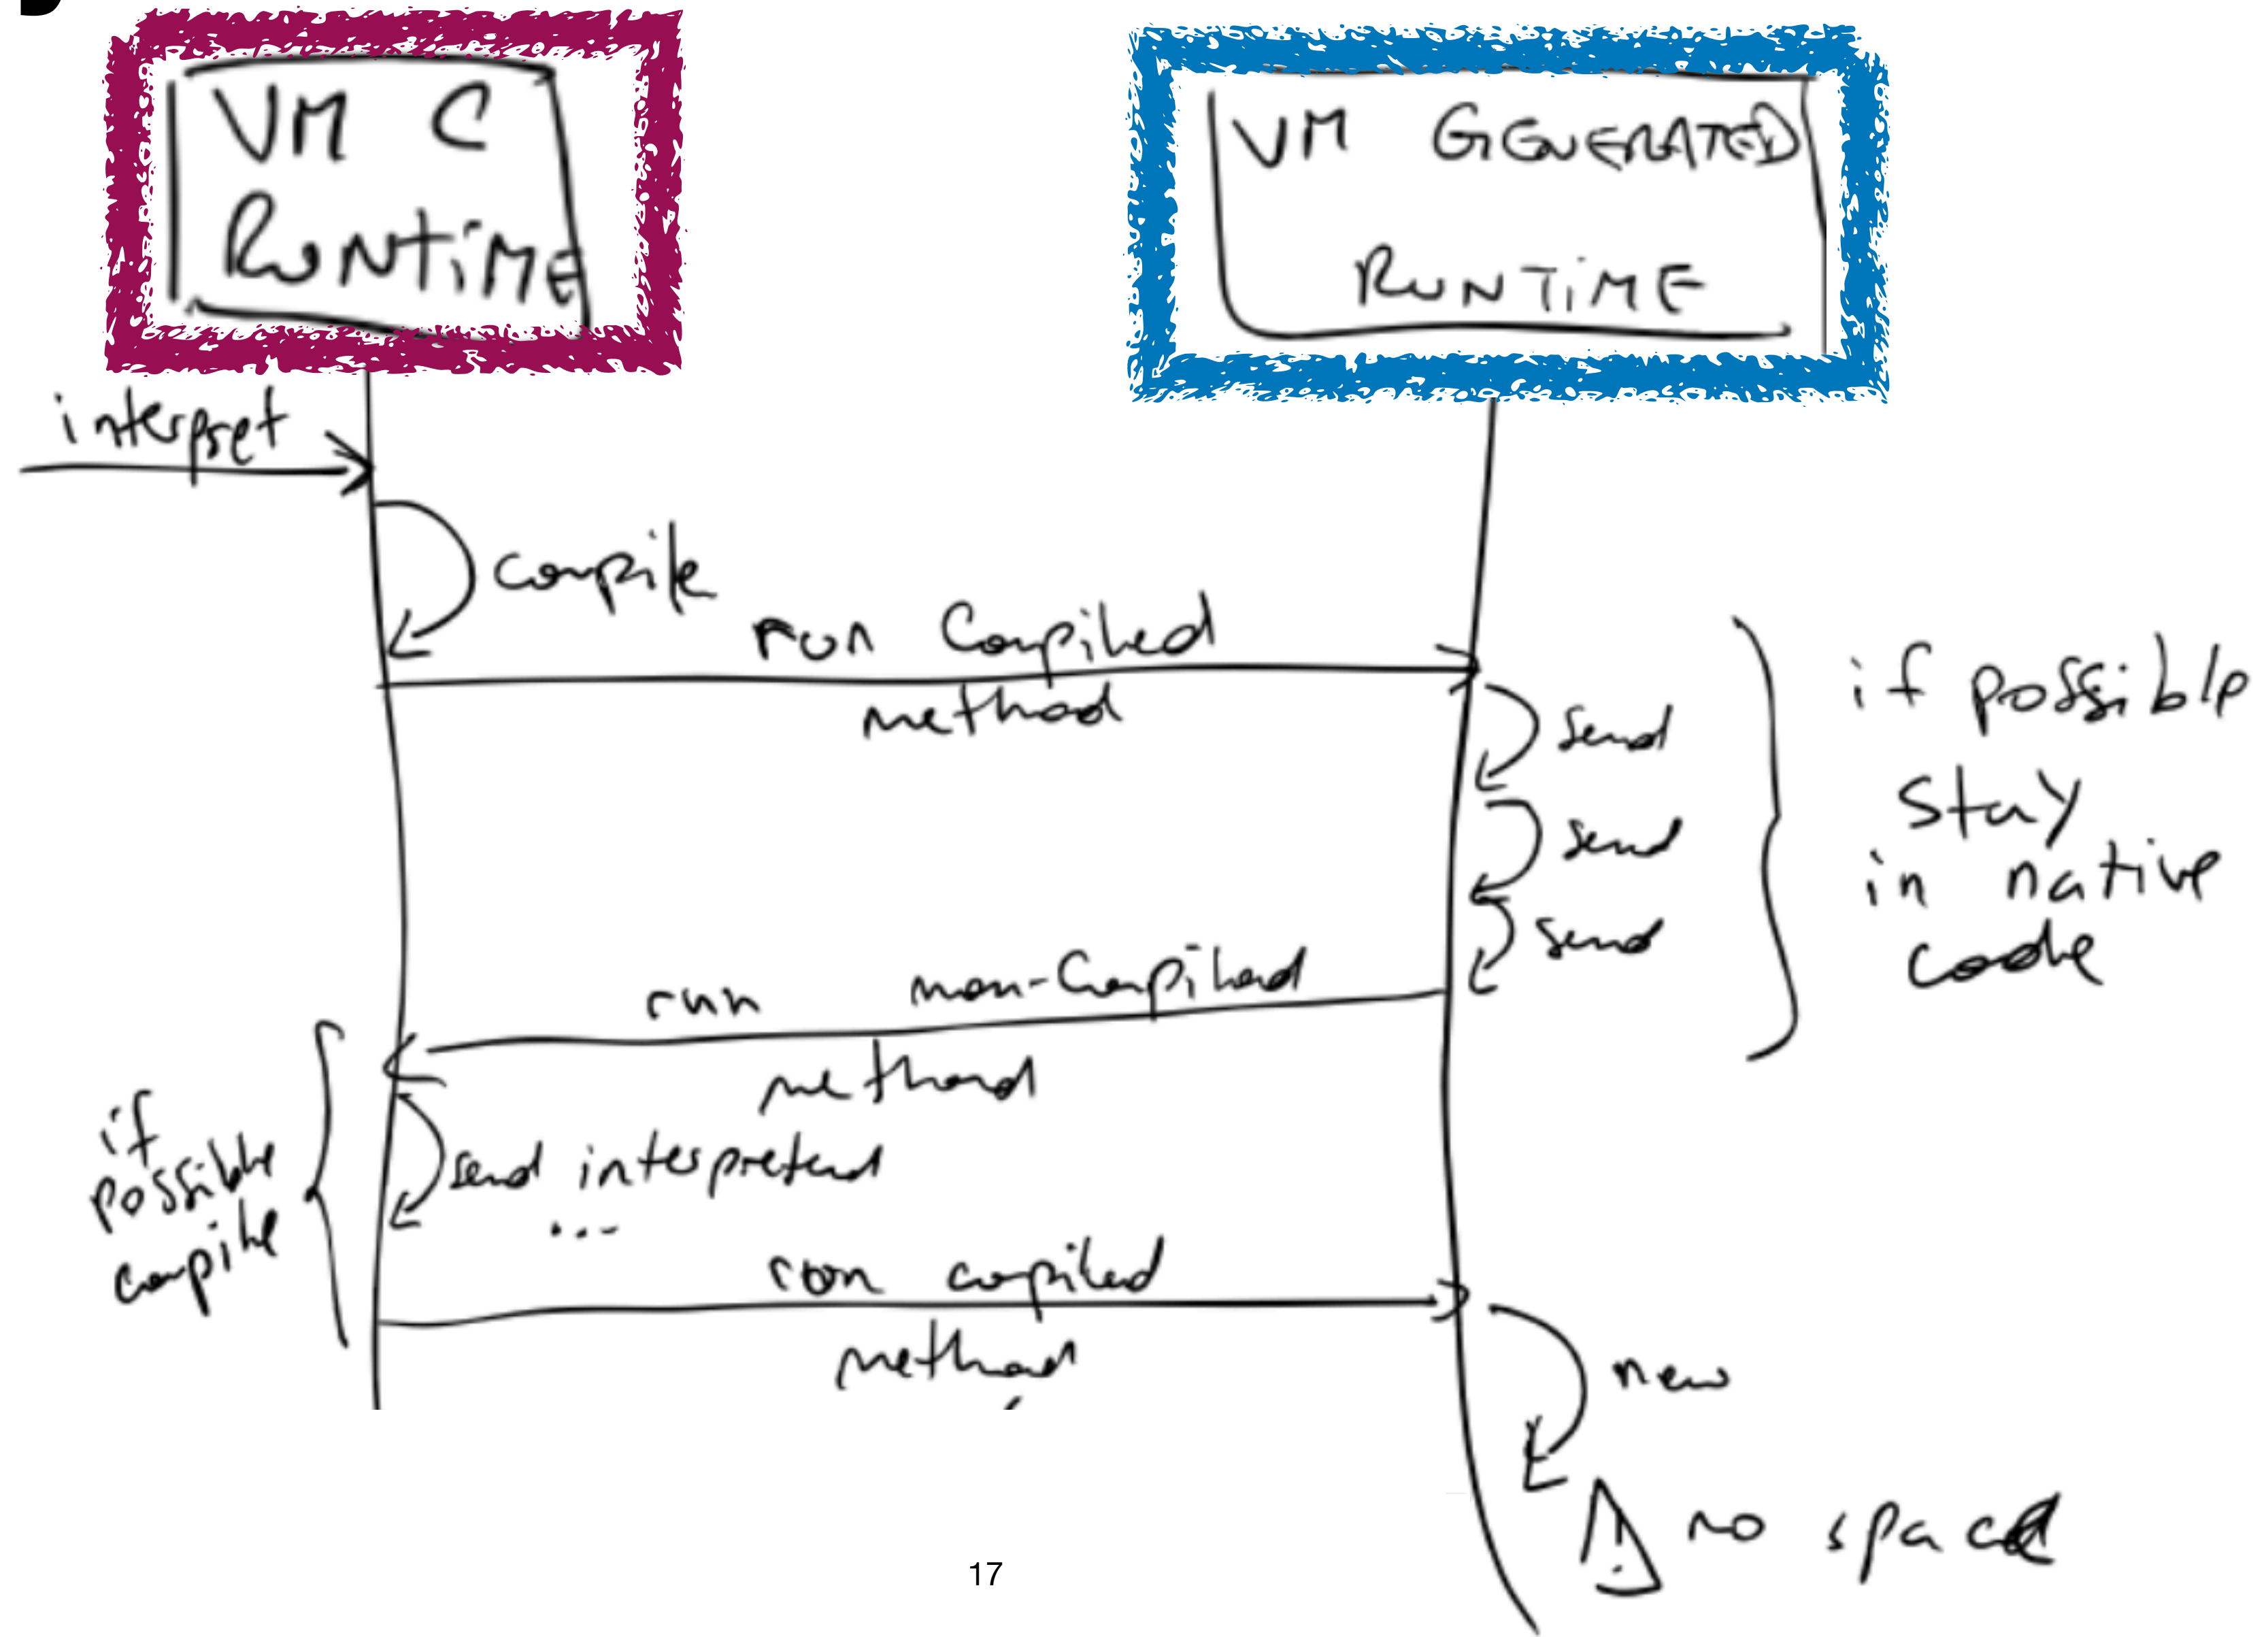 VM C
RUNTiME
VM GENERATED
RUNTiME
interpret
compile
run Compiled
method
send
send
send
if possible
stay
in native
code
run non-Compiled
method
if
possible
compile
send interpreted
...
run compiled
method
new
no space
17